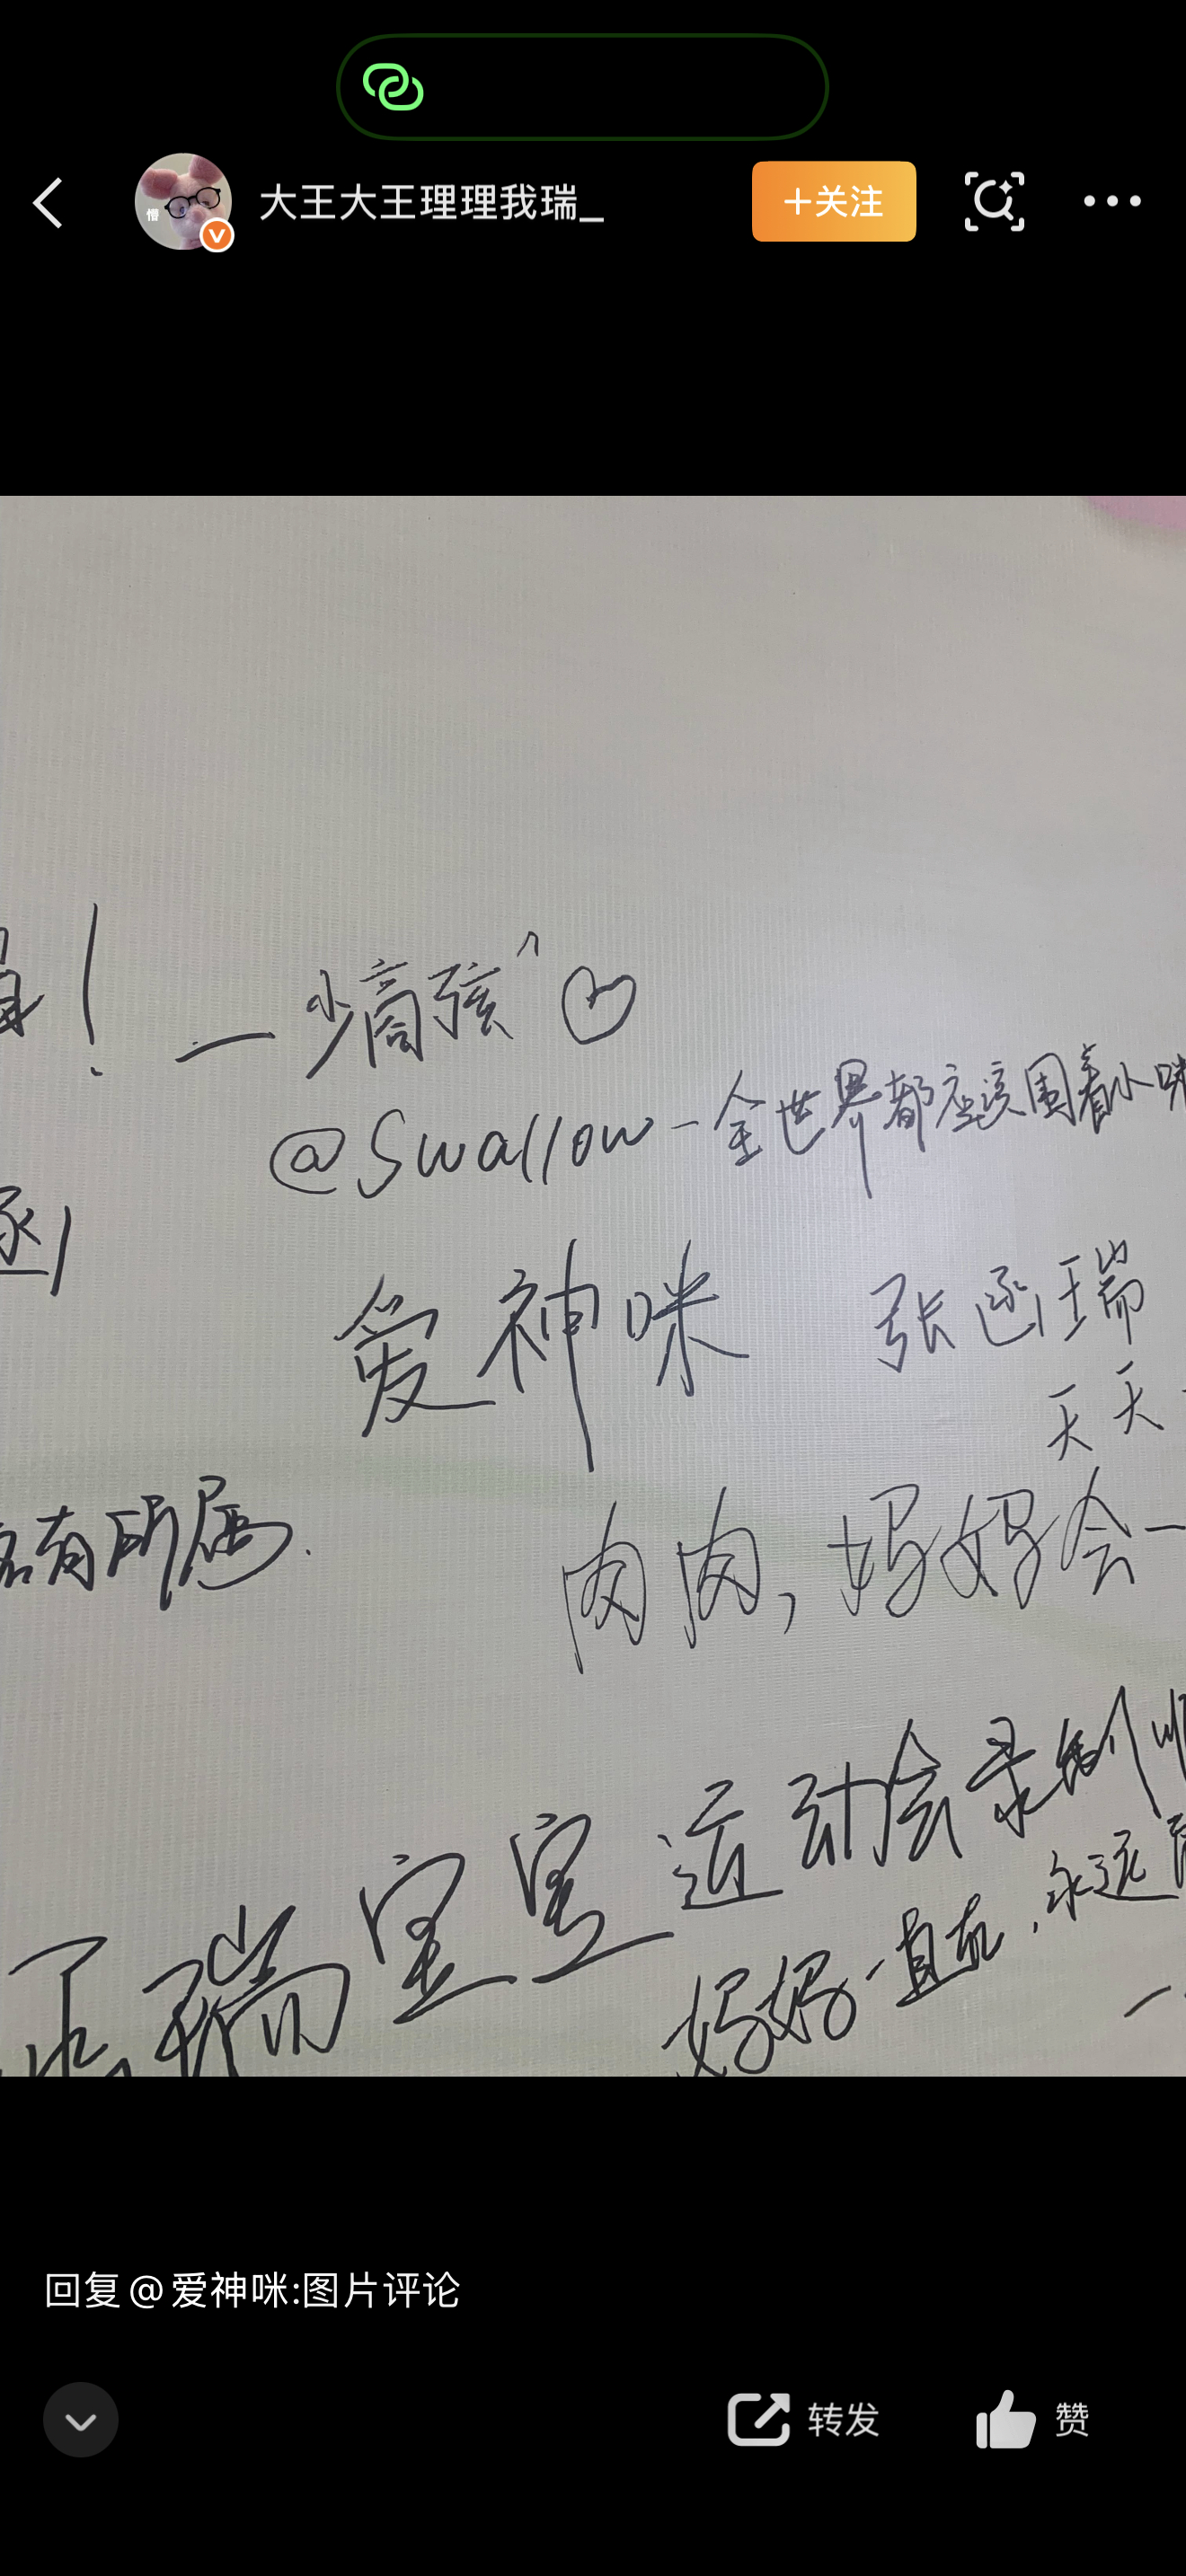 大王大王理理我瑞_
+关注
！
一少商孩^
@Swallow-全世界都应该围着小咪
爱神咪
张函瑞
天天
名有所属.
肉肉，妈妈会一
运动会录制顺
瑞宝宝
妈妈一直在，永远
回复@爱神咪:图片评论
转发
赞